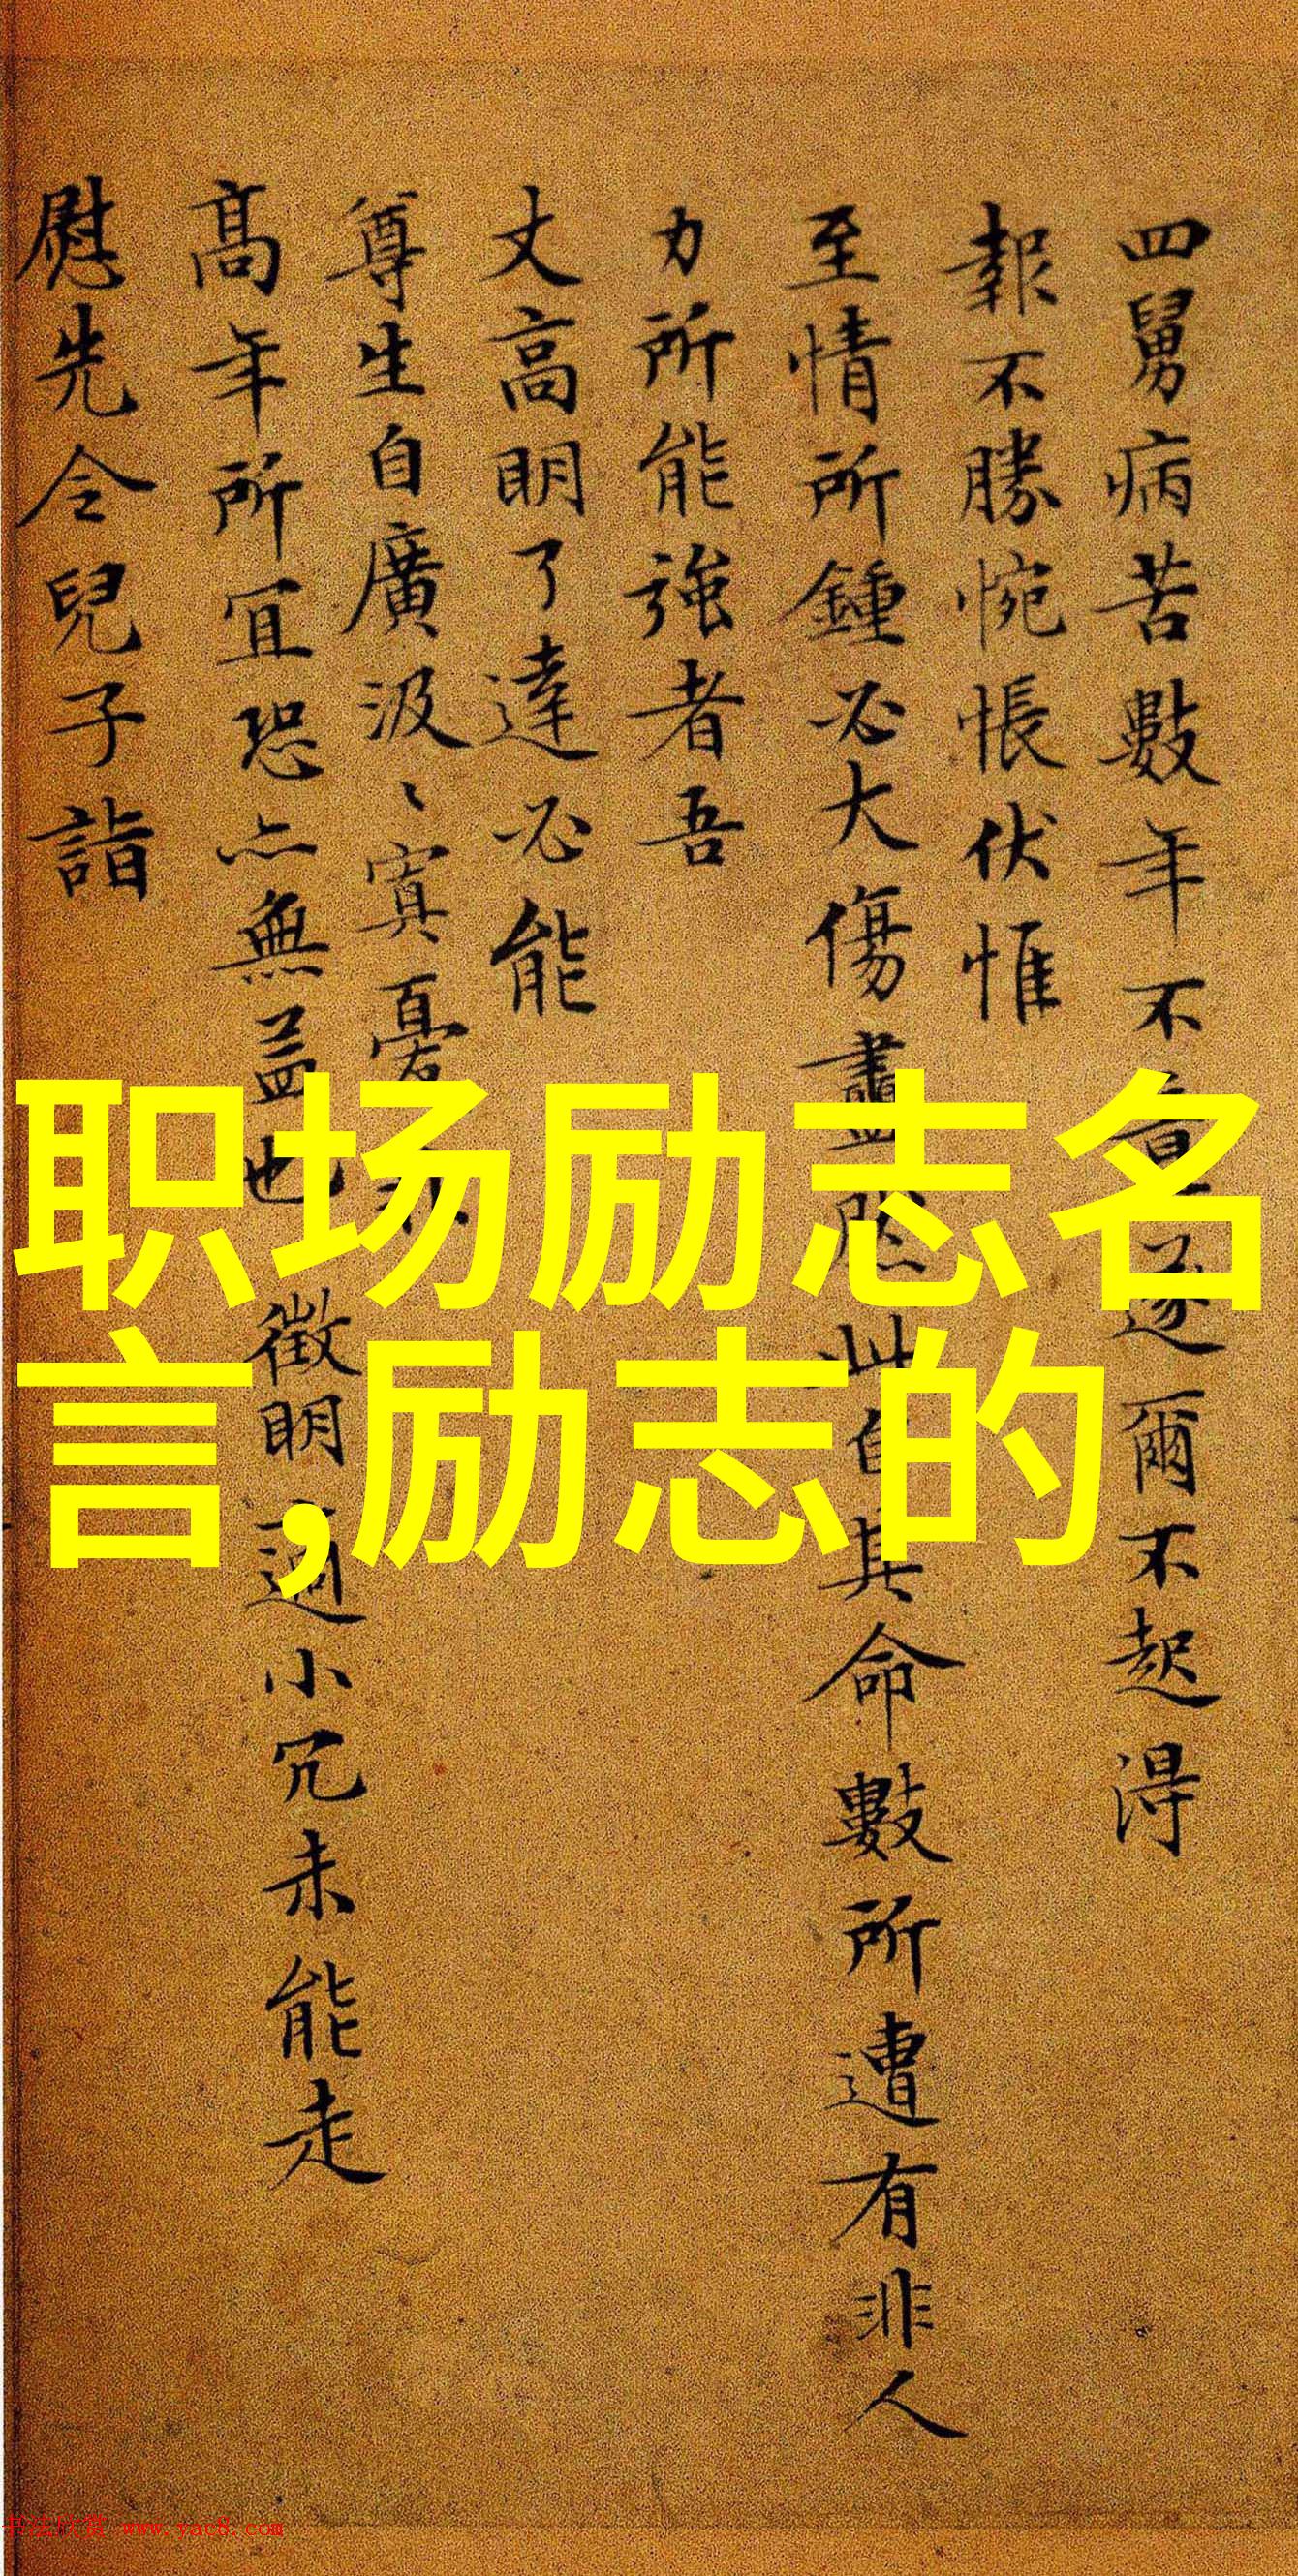 四舅病苦數年不意遂爾不起得
報不勝惋悵伏惟
至情所鍾必大傷盡然此自其命數所遭有非人
力所能強者吾
丈高明了達必能
尊生自廣汲〻寘憂
高年所宜恐亦無益也徵明適小冗未能走
慰先令兒子詣
职场励志名
言,励志的
书法欣赏 www.yac8.com